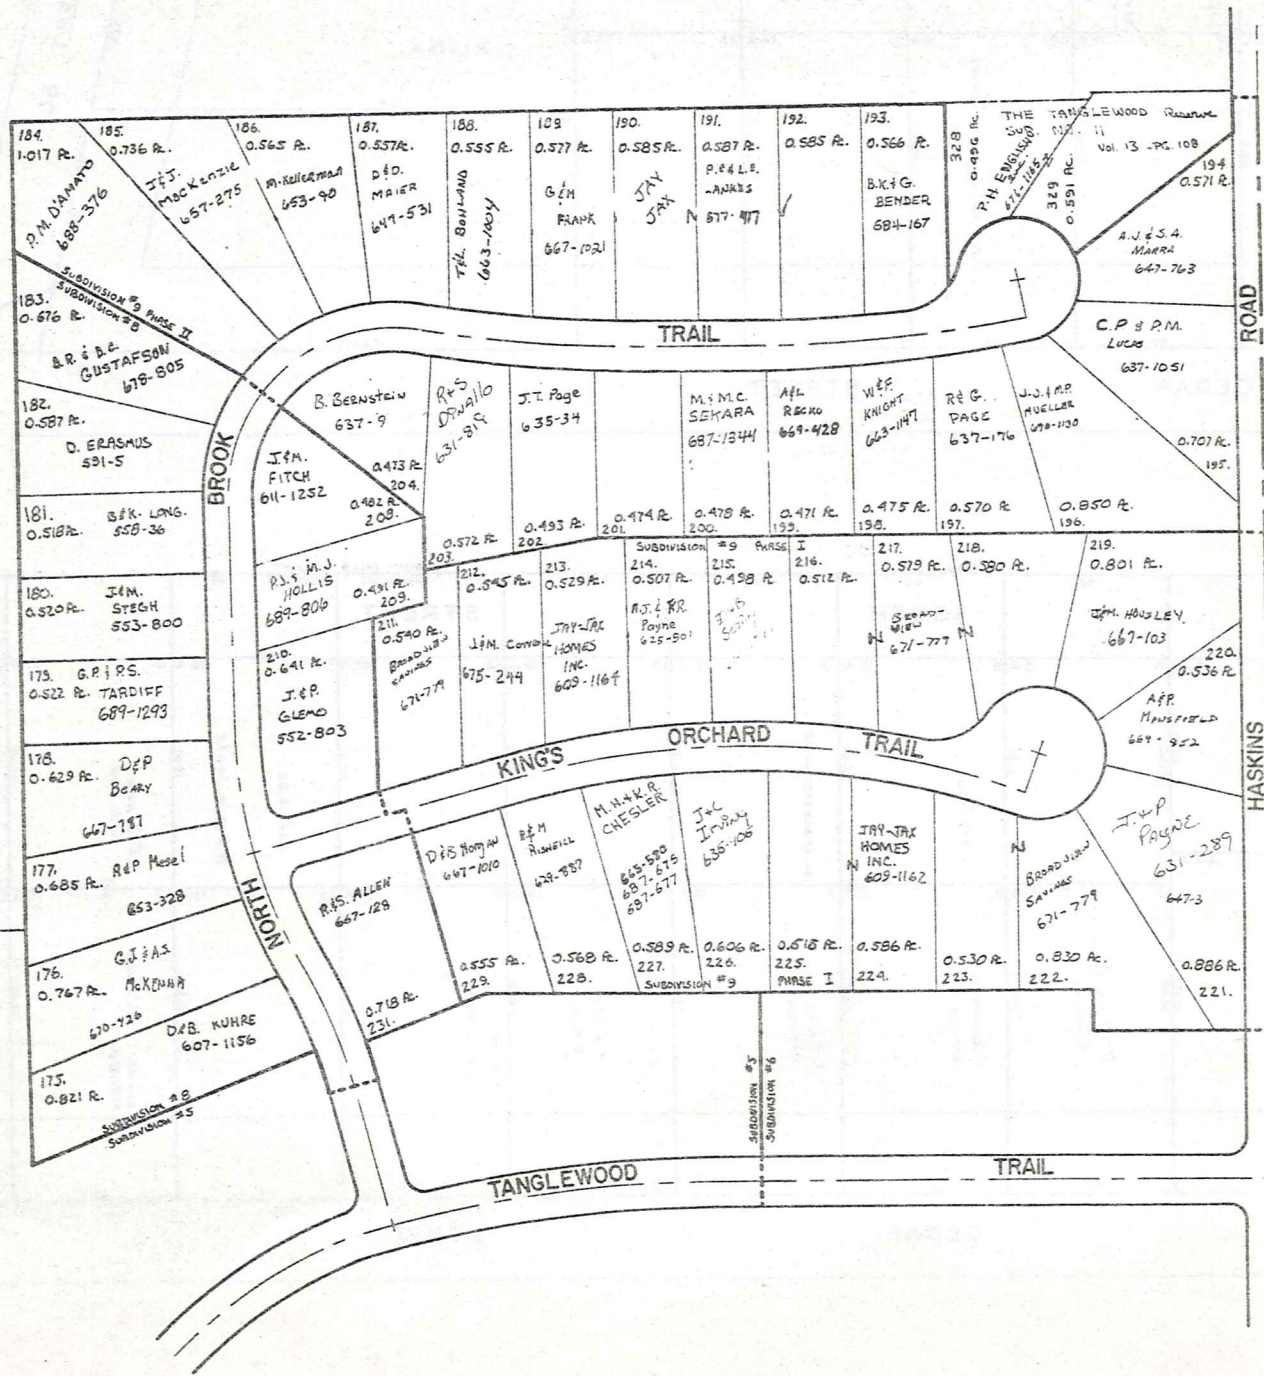 184.
1.017 Ac.
P. M. D'AMATO
688-376
185.
0.736 Ac.
J.&J.
MacKenzie
657-275
186.
0.565 Ac.
M. Kellerman
653-90
187.
0.557 Ac.
D.&D.
MAIER
647-531
188.
0.555 Ac.
T&L BOHLAND
663-1004
189
0.577 Ac.
G&H
FRANK
667-1021
190.
0.585 Ac.
JAY
JAX
191.
0.587 Ac.
P.&L.E.
N 677-417
192.
0.585 Ac.
193.
0.566 Ac.
B.K.&G.
BENDER
684-167
328
0.496 Ac.
P. H. ENGLISH
329
0.591 Ac.
THE TANGLEWOOD Reserve
SUB. NO. 11
Vol. 13 - PG. 108
194
0.571 Ac.
A.J. & S.A.
MARRA
647-763
C.P & P.M.
LUCAS
637-1051
0.707 Ac.
195.
SUBDIVISION #9 PHASE II
SUBDIVISION #8
183.
0.676 Ac.
GUSTAFSON
678-805
182.
0.587 Ac.
D. ERASMUS
591-5
181.
0.518 Ac.
B&K. LONG.
558-36
180.
0.520 Ac.
J&M.
STEGH
553-800
179.
0.522 Ac.
G.P. & P.S.
TARDIFF
689-1293
178.
0.629 Ac.
D&P
BEARY
667-787
177.
0.685 Ac.
R&P Mesel
653-328
176.
0.767 Ac.
G.J.&A.S
McKENNA
670-426
D&B. KUHRE
607-1156
175.
0.821 Ac.
SUBDIVISION #8
SUBDIVISION #5
NORTH
BROOK
TRAIL
B. BERNSTEIN
637-9
0.473 Ac.
204.
J.&M.
FITCH
611-1252
0.482 Ac.
208.
P.J. & M.J.
HOLLIS
689-806
0.491 Ac.
209.
210.
0.641 Ac.
J.&P.
GLEMO
552-803
R&S
631-819
0.572 Ac.
203.
J.T. Page
635-34
0.493 Ac.
202.
0.474 Ac.
201.
M.&M.C.
SEKARA
687-1344
0.478 Ac.
200.
A&L
RECKO
669-428
0.471 Ac.
199.
W&F.
KNIGHT
663-1147
0.475 Ac.
198.
R&G.
PAGE
637-176
0.570 Ac
197.
J.J.&M.P.
MUELLER
690-1130
0.850 Ac.
196.
SUBDIVISION #9 PHASE I
211.
0.540 Ac.
BROADVIEW
SAVINGS
671-779
212.
0.545 Ac.
J&M.
675-244
213.
0.529 Ac.
JAY-JAX
HOMES
INC.
609-1164
214.
0.507 Ac.
A.J. & K.R.
Payne
625-501
215.
0.498 Ac
216.
0.512 Ac.
217.
0.579 Ac.
BROAD-
VIEW
N 671-779 N
218.
0.580 Ac.
219.
0.801 Ac.
J&M. HOUSLEY
667-103
220.
0.536 Ac
A&P.
MANSFIELD
669-852
KING'S
ORCHARD
TRAIL
R&S. ALLEN
667-128
0.718 Ac.
231.
D&B Morgan
667-1010
0.555 Ac.
229.
R&M
629-887
0.568 Ac.
228.
M.H.&K.R.
CHESLER
665-580
687-675
687-677
0.589 Ac.
227.
J&C
Irving
635-106
0.606 Ac.
226.
0.618 Ac.
225.
JAY-JAX
HOMES
INC.
N 609-1162
0.586 Ac.
224.
0.530 Ac.
223.
N
BROADVIEW
SAVINGS
671-779
0.830 Ac.
222.
J.&P
PAYNE
631-289
647-3
0.886 Ac.
221.
SUBDIVISION #9 PHASE I
SUBDIVISION #5
SUBDIVISION #6
TANGLEWOOD
TRAIL
HASKINS
ROAD